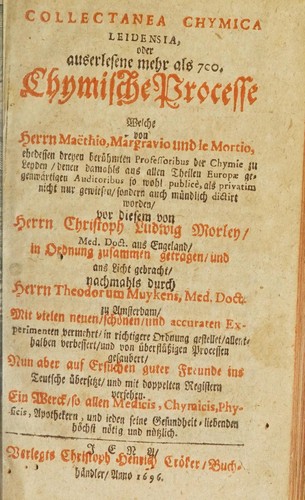 COLLECTANEA CHYMICA
LEIDENSIA,
oder
auserlesene mehr als 700.
Chymische Processe
Welche
von
Herrn Maëthio, Margravio und le Mortio,
ehedessen dreyen berühmten Professoribus der Chymie zu
Leyden / denen damahls aus allen Theilen Europæ ge-
genwärtigen Auditoribus so wohl publicè, als privatim
nicht nur gewiesen / sondern auch mündlich dictirt
worden /
vor diesem von
Herrn Christoph Ludwig Morley /
Med. Doct. aus Engeland /
in Ordnung zusammen getragen / und
ans Licht gebracht /
nachmahls durch
Herrn Theodorum Muykens, Med. Doct.
zu Amsterdam /
Mit vielen neuen / schönen / und accuraten Ex-
perimenten vermehrt / in richtigere Ordnung gestellet / allent-
halben verbessert / und von überflüßigen Processen
gesaubert /
Nun aber auf Ersuchen guter Freunde ins
Teutsche übersetzt / und mit doppelten Registern
versehen.
Ein Werck / so allen Medicis, Chymicis, Phy-
sicis, Apothekern, und jeden seine Gesundheit liebenden
höchst nötig und nützlich.
JENA /
Verlegts Christoph Henrich Cröker / Buch-
händler / Anno 1696.